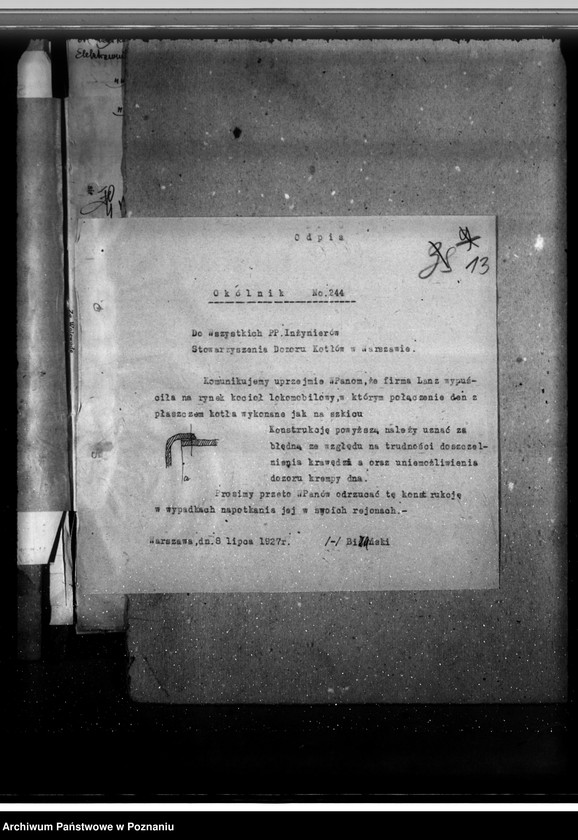 Elektrowni
O d p i s
13
O k ó l n i k   No.244
Do wszystkich PP.Inżynierów
Stowarzyszenia Dozoru Kotłów w Warszawie.
Komunikujemy uprzejmie WPanom,że firma Lanz wypuś-
ciła na rynek kocieł lokomobilowy,w którym połączenie den z
płaszczem kotła wykonane jak na szkicu
Konstrukcję powyższą należy uznać za
błędną ze względu na trudności doszczel-
nienia krawędzi a oraz uniemożliwienia
dozoru krempy dna.
a
Prosimy przeto WPanów odrzucać tę konstrukcję
w wypadkach napotkania jej w swoich rejonach.-
Warszawa,dn.8 lipca 1927r.   /-/
Archiwum Państwowe w Poznaniu